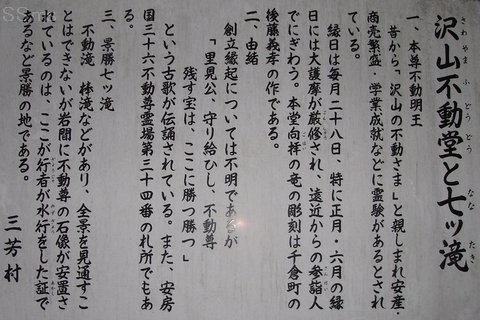 沢山不動堂と七ッ滝
さわやまふどうどう ななたき
一、本尊不動明王
昔から「沢山の不動さま」と親しまれ安産・
商売繁盛・学業成就などに霊験があるとされ
ている。
縁日は毎月二十八日、特に正月・六月の縁
日には大護摩が厳修され、遠近からの参詣人
でにぎわう。本堂向拝の竜の彫刻は千倉町の
後藤義孝の作である。
二、由緒
創立縁起については不明であるが
「里見公、守り給ひし、不動尊
残す宝は、ここに勝つ勝つ」
という古歌が伝誦されている。また、安房
国三十六不動尊霊場第三十四番の札所でもあ
る。
三、景勝七ッ滝
不動滝、棒滝などがあり、全景を見通すこ
とはできないが岩間に不動尊の石像が安置さ
れているのは、ここが行者が水行をした証で
あるなど景勝の地である。
三芳村